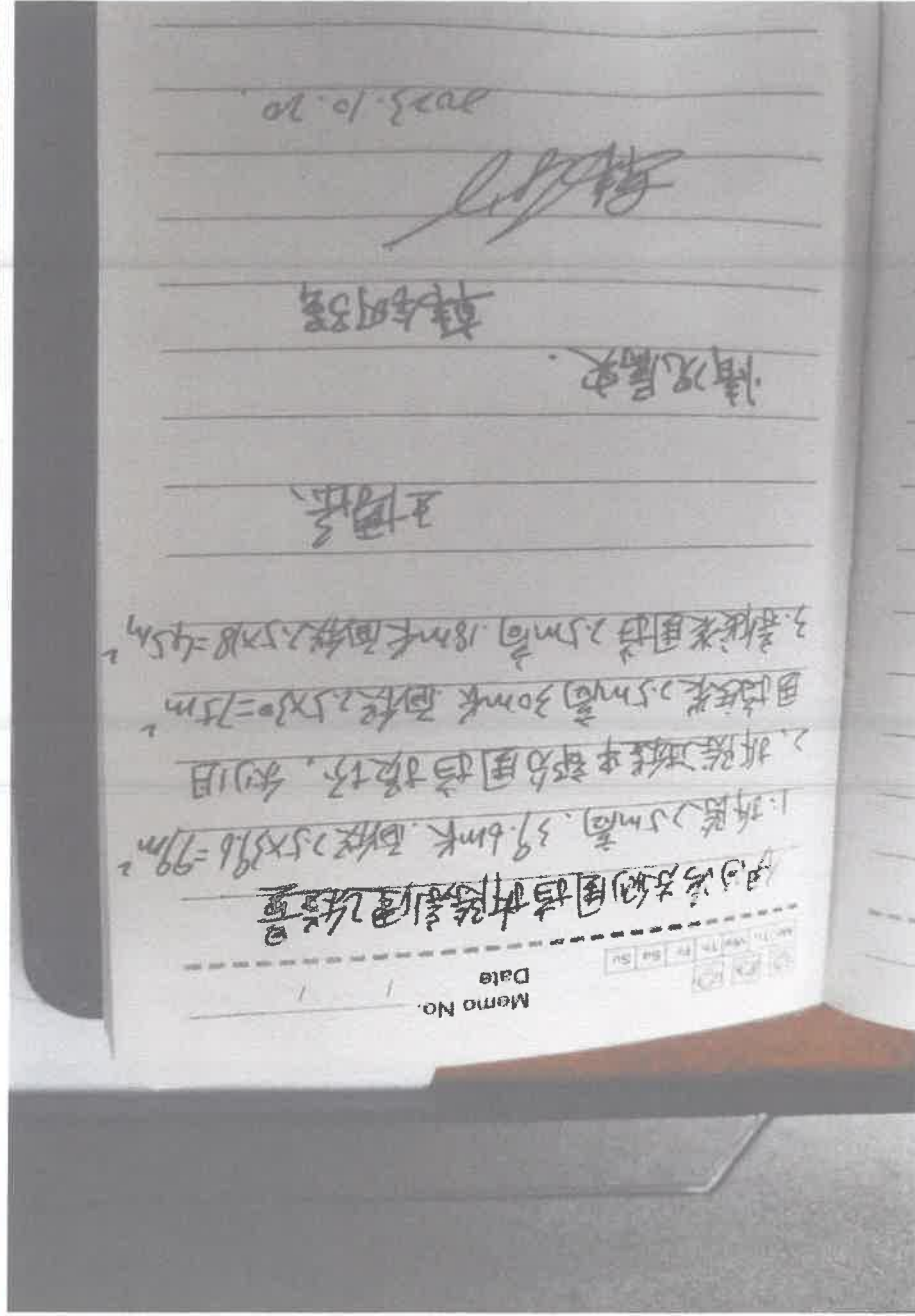 Memo No.
Date / /
Mo Tu We Th Fr Sa Su
侧围挡拆除新建工程量
1.拆除2.5m高、39.6m长.面积2.5×39.6=99m²
2、拆除过程中部分围挡损坏,利旧
围挡安装2.5m高30m长.面积2.5×30=75m²
3.新安装围挡2.5m高.18m长面积2.5×18=45m²
情况属实.
2023.10.20.